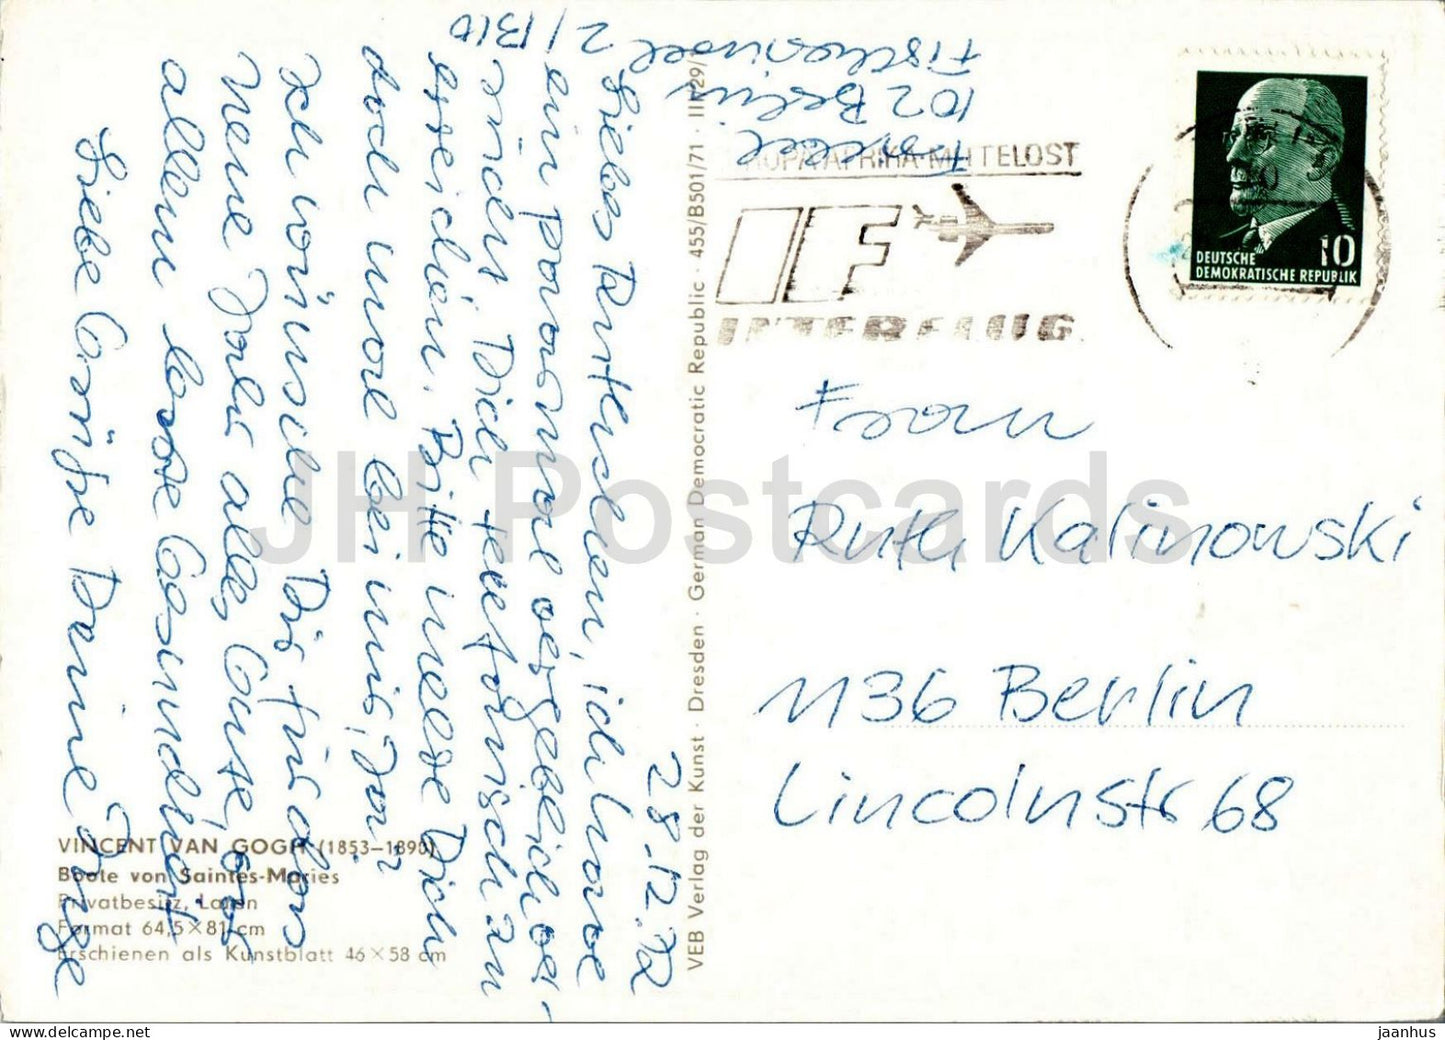 28.12.72
Liebes Ruthchen, ich habe
ein paarmal vergeblich ver-
sucht, Dich telefonisch zu
erreichen. Bitte melde Dich
doch mal bei mir, ja?
Ich wünsche Dir für das
Neue Jahr alles Gute, vor
allem beste Gesundheit
Liebe Grüße Deine Inge
102 Berlin
Fischerinsel 2/
VINCENT VAN GOGH (1853–1890)
Boote von Saintes-Maries
Privatbesitz, Laren
Format 64,5×81 cm
Erschienen als Kunstblatt 46×58 cm
VEB Verlag der Kunst · Dresden · German Democratic Republic · 455/B501/71 ·
EUROPA·AFRIKA·MITTELOST
IF
INTERFLUG
DEUTSCHE
DEMOKRATISCHE REPUBLIK
10
Frau
Ruth Kalinowski
1136 Berlin
Lincolnstr 68
JH Postcards
jaanhus